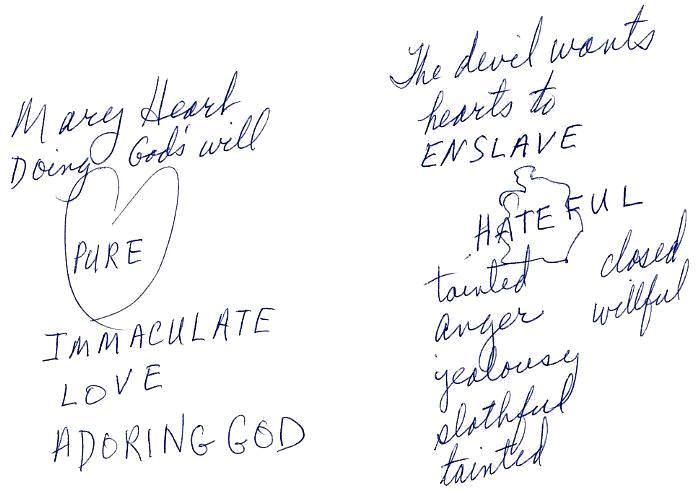 Mary Heart
Doing God's will
PURE
IMMACULATE
LOVE
ADORING GOD
The devil wants
hearts to
ENSLAVE
HATEFUL
tainted closed
anger willful
jealousy
slothful
tainted